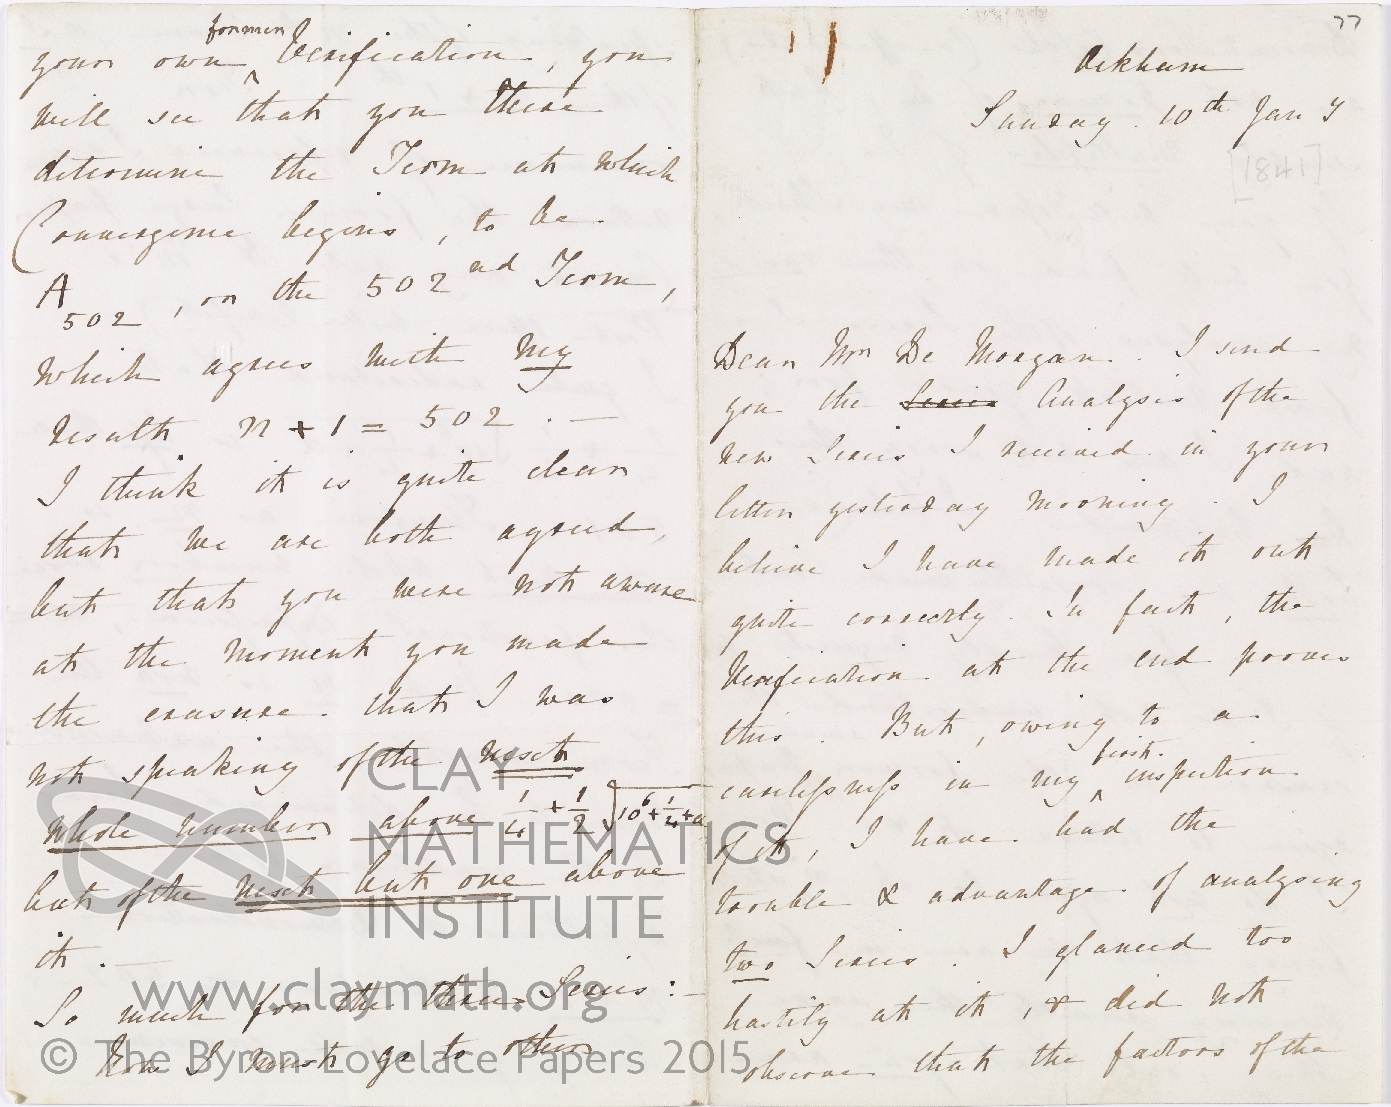 your own former Verification, you
will see that you there
determine the Term at which
Convergence begins, to be
A
502, or the 502nd Term,
which agrees with my
result n + 1 = 502. —
I think it is quite clear
that we are both agreed,
but that you were not aware
at the moment you made
the erasure that I was
not speaking of the next
whole number above 1/4 + 1/2 √10^6 + 1/4 + a
but of the next but one above
it. —
So much for the three Series: —
Now I must go to other
77
Ockham
Sunday. 10th Jany
[1841]
Dear Mr De Morgan. I send
you the Series Analysis of the
new Series I received in your
letter yesterday morning. I
believe I have made it out
quite correctly. In fact, the
Verification at the end proves
this. But, owing to a
carelessness in my first inspection
of it, I have had the
trouble & advantage of analysing
two Series. I glanced too
hastily at it, & did not
observe that the factors of the
CLAY
MATHEMATICS
INSTITUTE
www.claymath.org
© The Byron-Lovelace Papers 2015